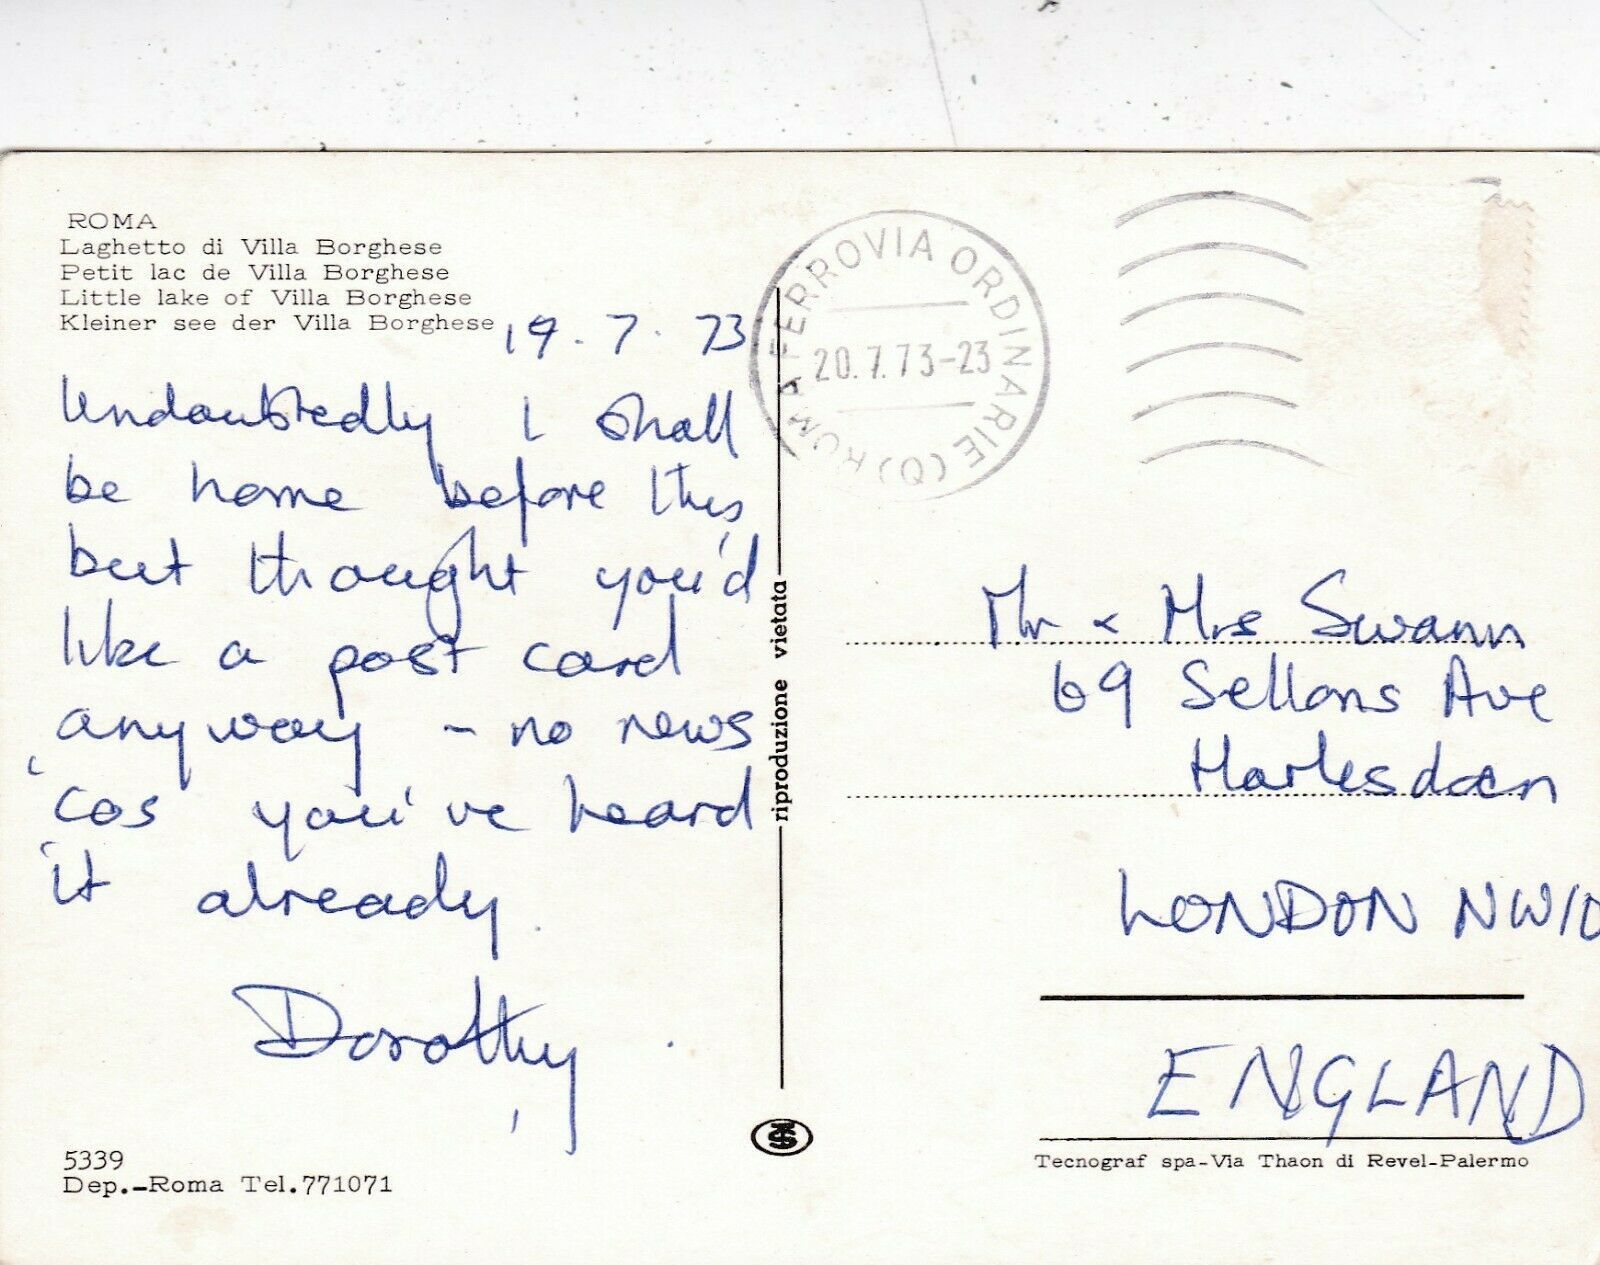 ROMA
Laghetto di Villa Borghese
Petit lac de Villa Borghese
Little lake of Villa Borghese
Kleiner see der Villa Borghese
19.7.73
Undoubtedly I shall
be home before this,
but thought you'd
like a post card
anyway - no news
'cos you've heard
it already.
Dorothy
5339
Dep.-Roma Tel.771071
riproduzione vietata
ROMA FERROVIA ORDINARIE (Q)
20.7.73-23
Mr & Mrs Swann
69 Sellons Ave
Harlesden
LONDON NW10
ENGLAND
Tecnograf spa-Via Thaon di Revel-Palermo